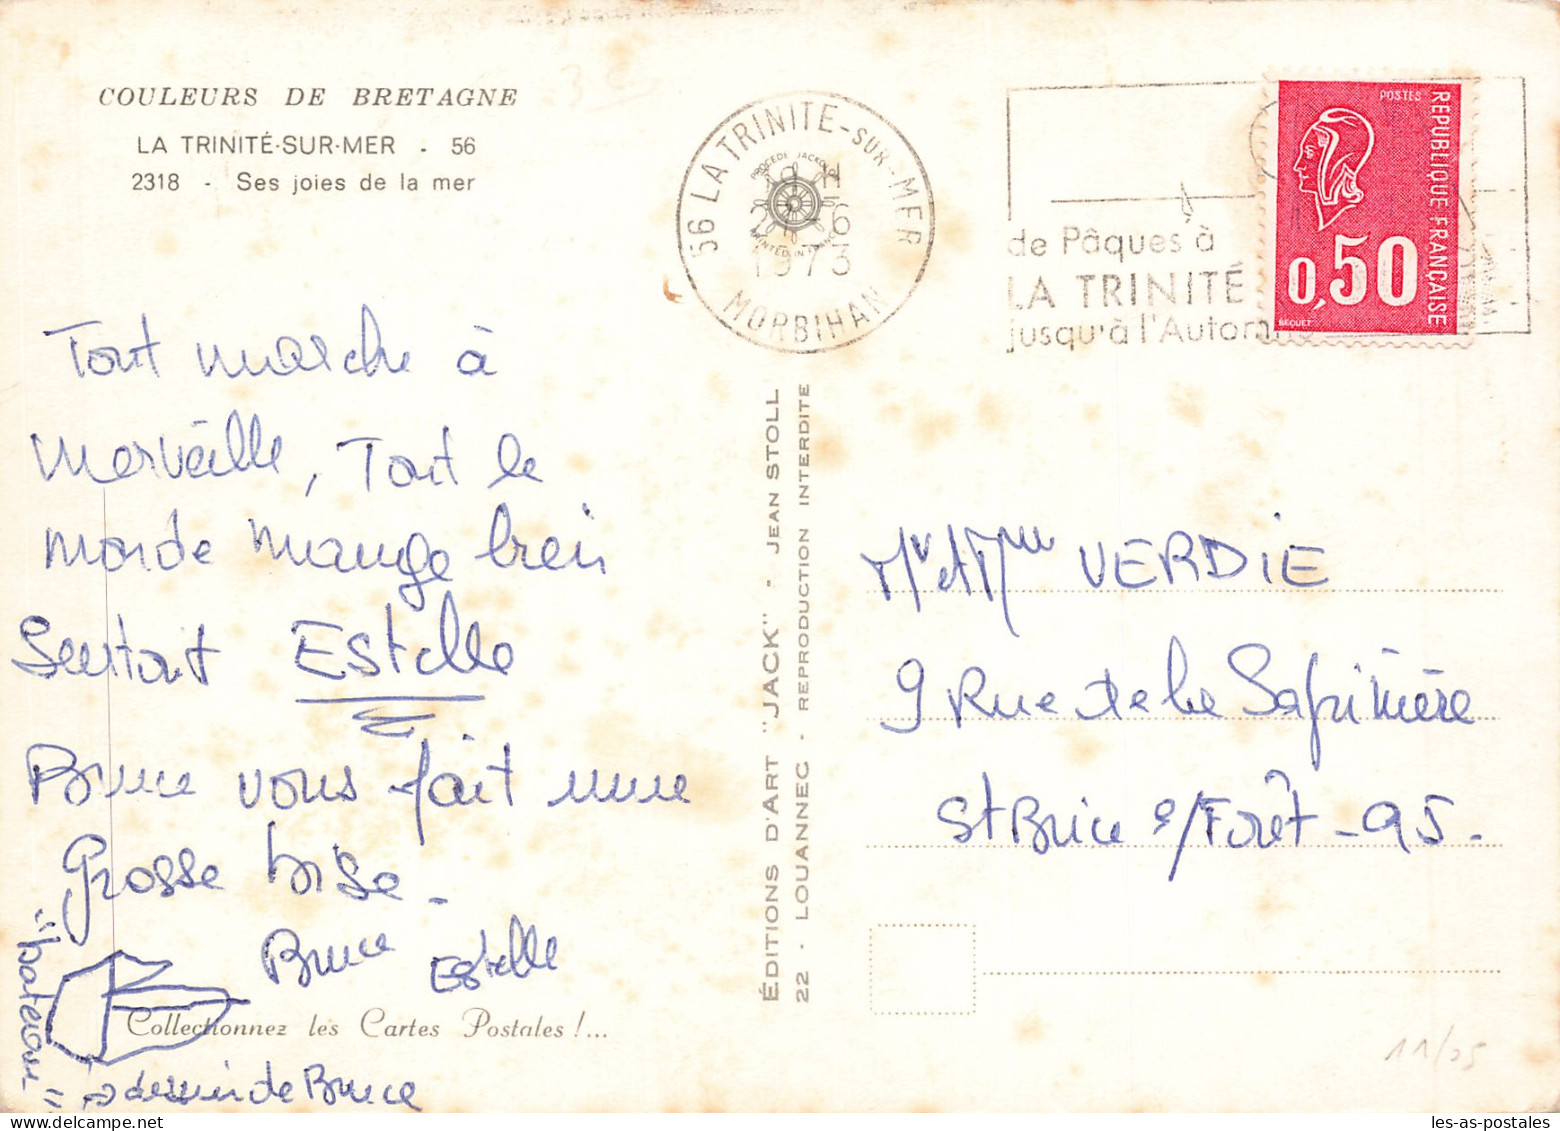 COULEURS DE BRETAGNE
LA TRINITÉ-SUR-MER - 56
2318 - Ses joies de la mer
Tout marche à
merveille, Tout le
monde mange bien
Surtout Estelle
Bruce vous fait une
Grosse bise -
Bruce Estelle
"bateau"
Collectionnez les Cartes Postales !...
dessin de Bruce
56 LA TRINITE-SUR-MER
PROCEDE JACKCOLOR
PRINTED IN FRANCE
-6
1973
MORBIHAN
de Pâques à
LA TRINITÉ
jusqu'à l'Autom
POSTES
REPUBLIQUE FRANÇAISE
0,50
BEQUET
ÉDITIONS D'ART "JACK" - JEAN STOLL
22 - LOUANNEC - REPRODUCTION INTERDITE
Mr et Mme VERDIE
9 Rue de la Sapinière
St Brice s/Forêt - 95 -
11/25
les-as-postales